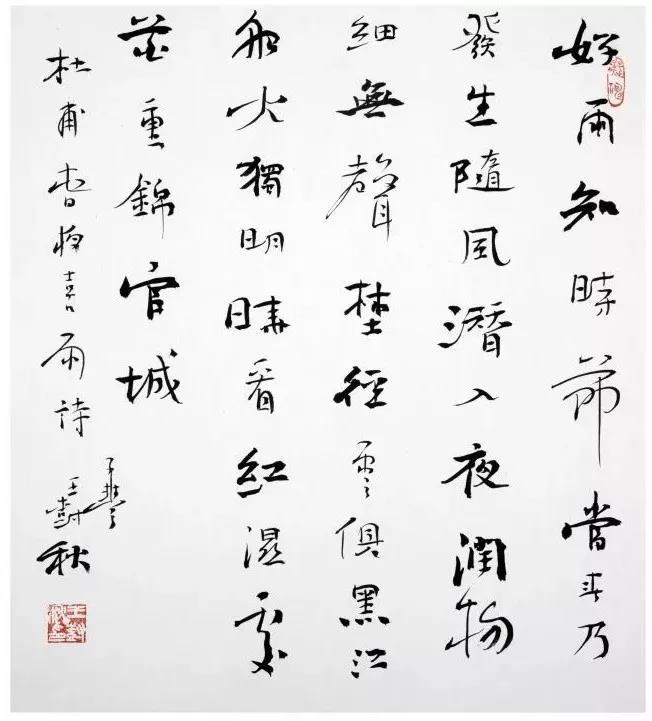 好雨知時節當春乃
發生隨風潛入夜潤物
細無聲埜徑雲俱黑江
船火獨明曉看紅濕處
花重錦官城
杜甫春夜喜雨詩
王樹秋